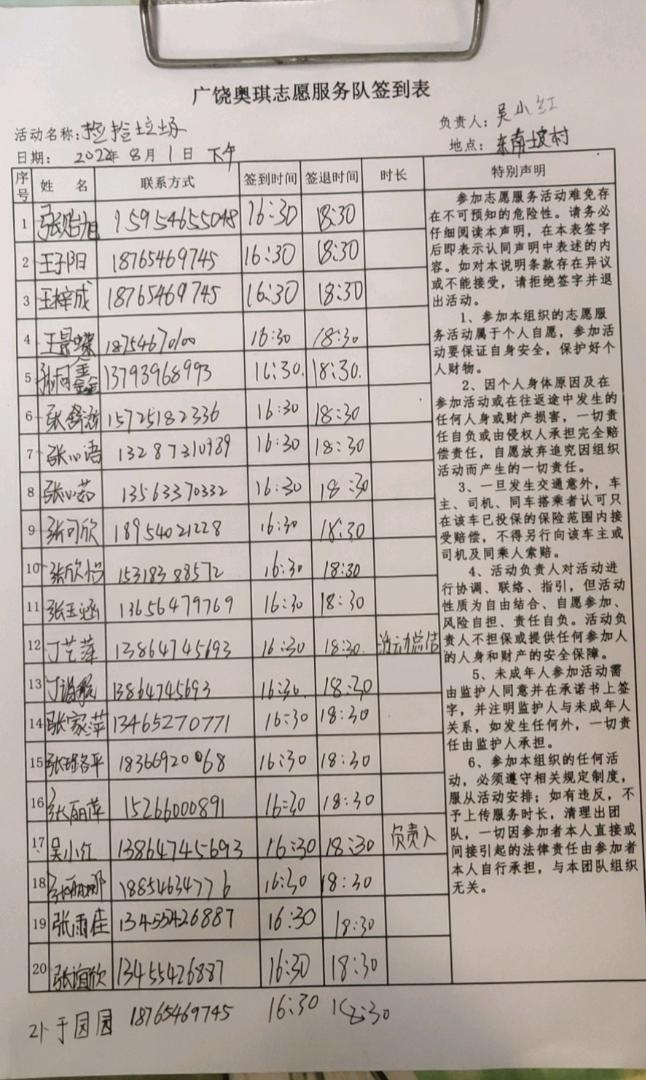 广饶奥琪志愿服务队签到表
活动名称: 捡拾垃圾
负责人: 吴小红
日期: 2022年8月1日 下午
地点: 东南坡村
序号 姓名 联系方式 签到时间 签退时间 时长 特别声明
1 张贻旭 15954655048 16:30 18:30
2 王子阳 18765469745 16:30 18:30
3 王梓成 18765469745 16:30 18:30
4 王景蝶 18754670100 16:30 18:30
5 13793968993 16:30. 18:30.
6 张舒涵 15725182336 16:30 18:30
7 张心语 13287310989 16:30 18:30
8 张心茹 13563370332 16:30 18:30
9 张可欣 18954021228 16:30 18:30
10 张欣怡 15318388572 16:30 18:30
11 张玉涵 13656479769 16:30 18:30
12 丁艺萍 13864745693 16:30 18:30. 活动总结
13 13864745693 16:30. 18:30
14 张家萍 13465270771 16:30 18:30
15 18366920068 16:30 18:30
16 张丽萍 15266000891 16:30 18:30
17 吴小红 13864745693 16:30 18:30 负责人
18 18854634776 16:30 18:30
19 张雨佳 13455426887 16:30 18:30
20 张谊欣 13455426887 16:30 18:30
21 于园园 18765469745 16:30 18:30
参加志愿服务活动难免存
在不可预知的危险性。请务必
仔细阅读本声明，在本表签字
后即表示认同声明中表述的内
容。如对本说明条款存在异议
或不能接受，请拒绝签字并退
出活动。
1、参加本组织的志愿服
务活动属于个人自愿，参加活
动要保证自身安全，保护好个
人财物。
2、因个人身体原因及在
参加活动或在往返途中发生的
任何人身或财产损害，一切责
任自负或由侵权人承担完全赔
偿责任，自愿放弃追究因组织
活动而产生的一切责任。
3、一旦发生交通意外，车
主、司机、同车搭乘者认可只
在该车已投保的保险范围内接
受赔偿，不得另行向该车主或
司机及同乘人索赔。
4、活动负责人对活动进
行协调、联络、指引，但活动
性质为自由结合、自愿参加、
风险自担、责任自负。活动负
责人不担保或提供任何参加人
的人身和财产的安全保障。
5、未成年人参加活动需
由监护人同意并在承诺书上签
字，并注明监护人与未成年人
关系，如发生任何外，一切责
任由监护人承担。
6、参加本组织的任何活
动，必须遵守相关规定制度，
服从活动安排；如有违反，不
予上传服务时长，清理出团
队，一切因参加者本人直接或
间接引起的法律责任由参加者
本人自行承担，与本团队组织
无关。